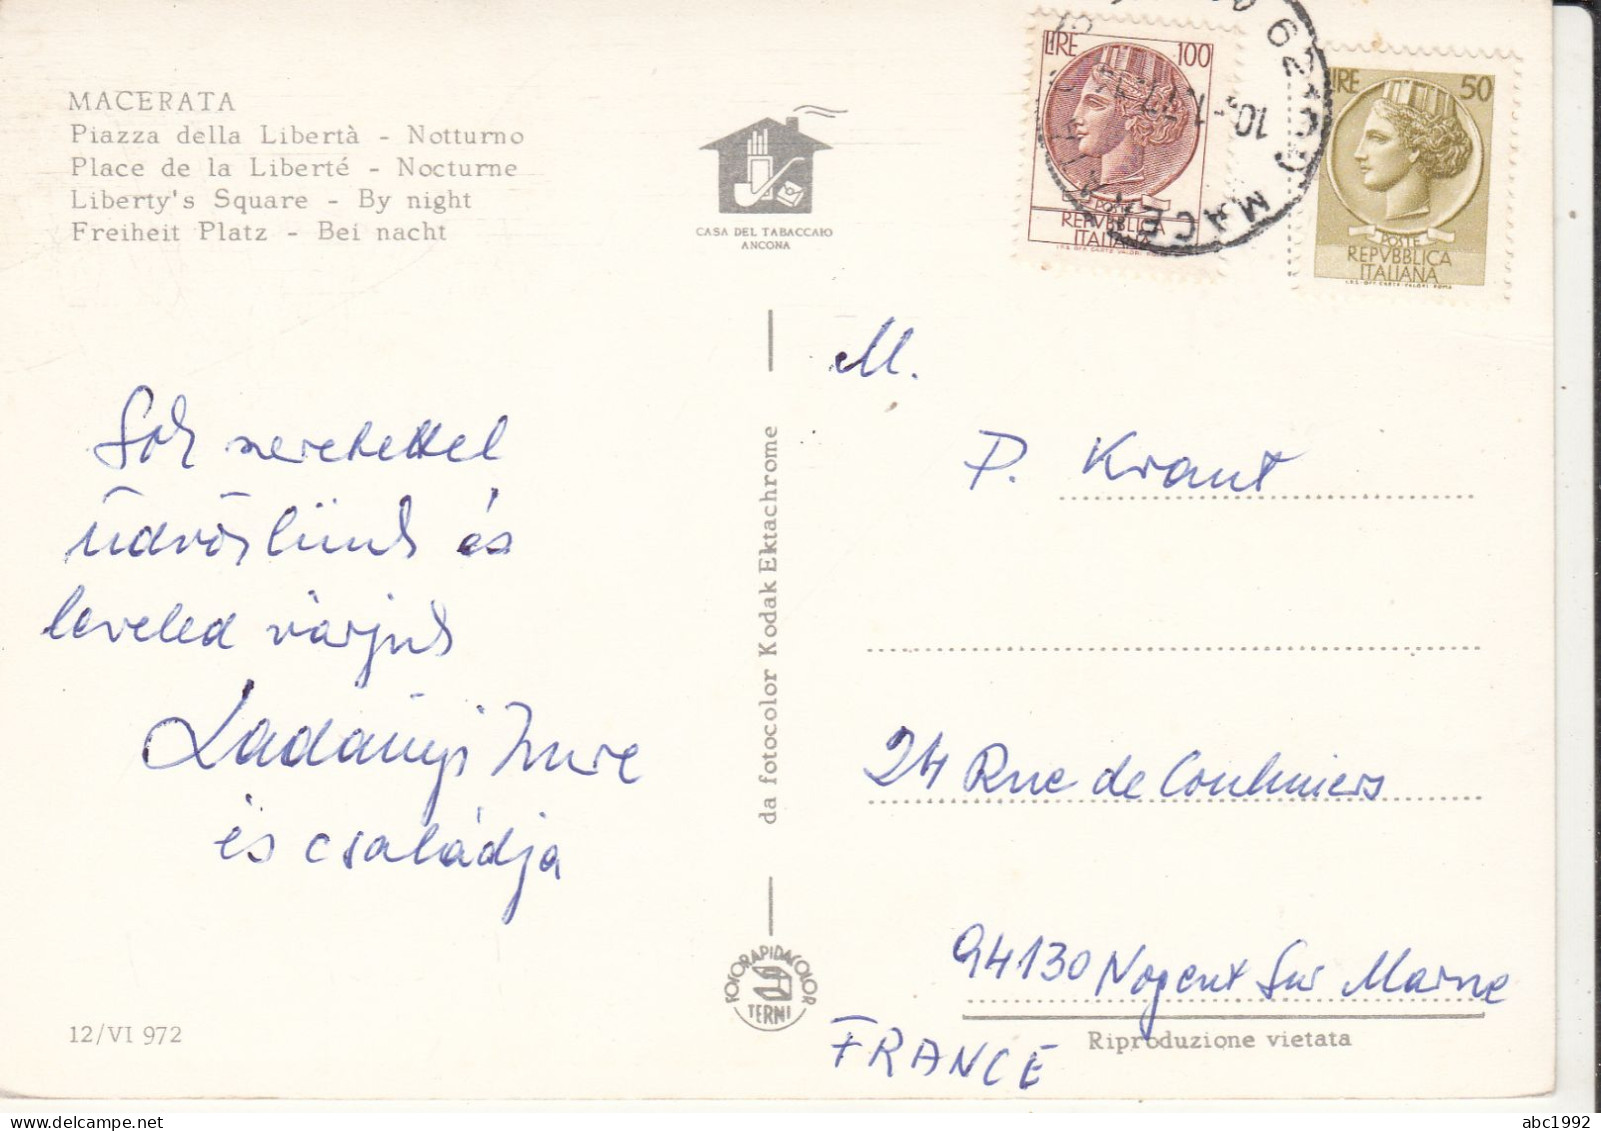 MACERATA
Piazza della Libertà - Notturno
Place de la Liberté - Nocturne
Liberty's Square - By night
Freiheit Platz - Bei nacht
CASA DEL TABACCAIO
ANCONA
LIRE 100
POSTE
REPVBBLICA
ITALIANA
I.P.S. OFF. CARTE VALORI ROMA
LIRE 50
POSTE
REPVBBLICA
ITALIANA
I.P.S. OFF. CARTE VALORI ROMA
62100 MACERATA
Sok szeretettel
üdvözlünk és
leveled várjuk
Ladányi Imre
és családja
da fotocolor Kodak Ektachrome
FOTORAPIDACOLOR
TERNI
12/VI 972
M.
P. Kraut
24 Rue de Coulmiers
94130 Nogent Sur Marne
FRANCE
Riproduzione vietata
abc1992